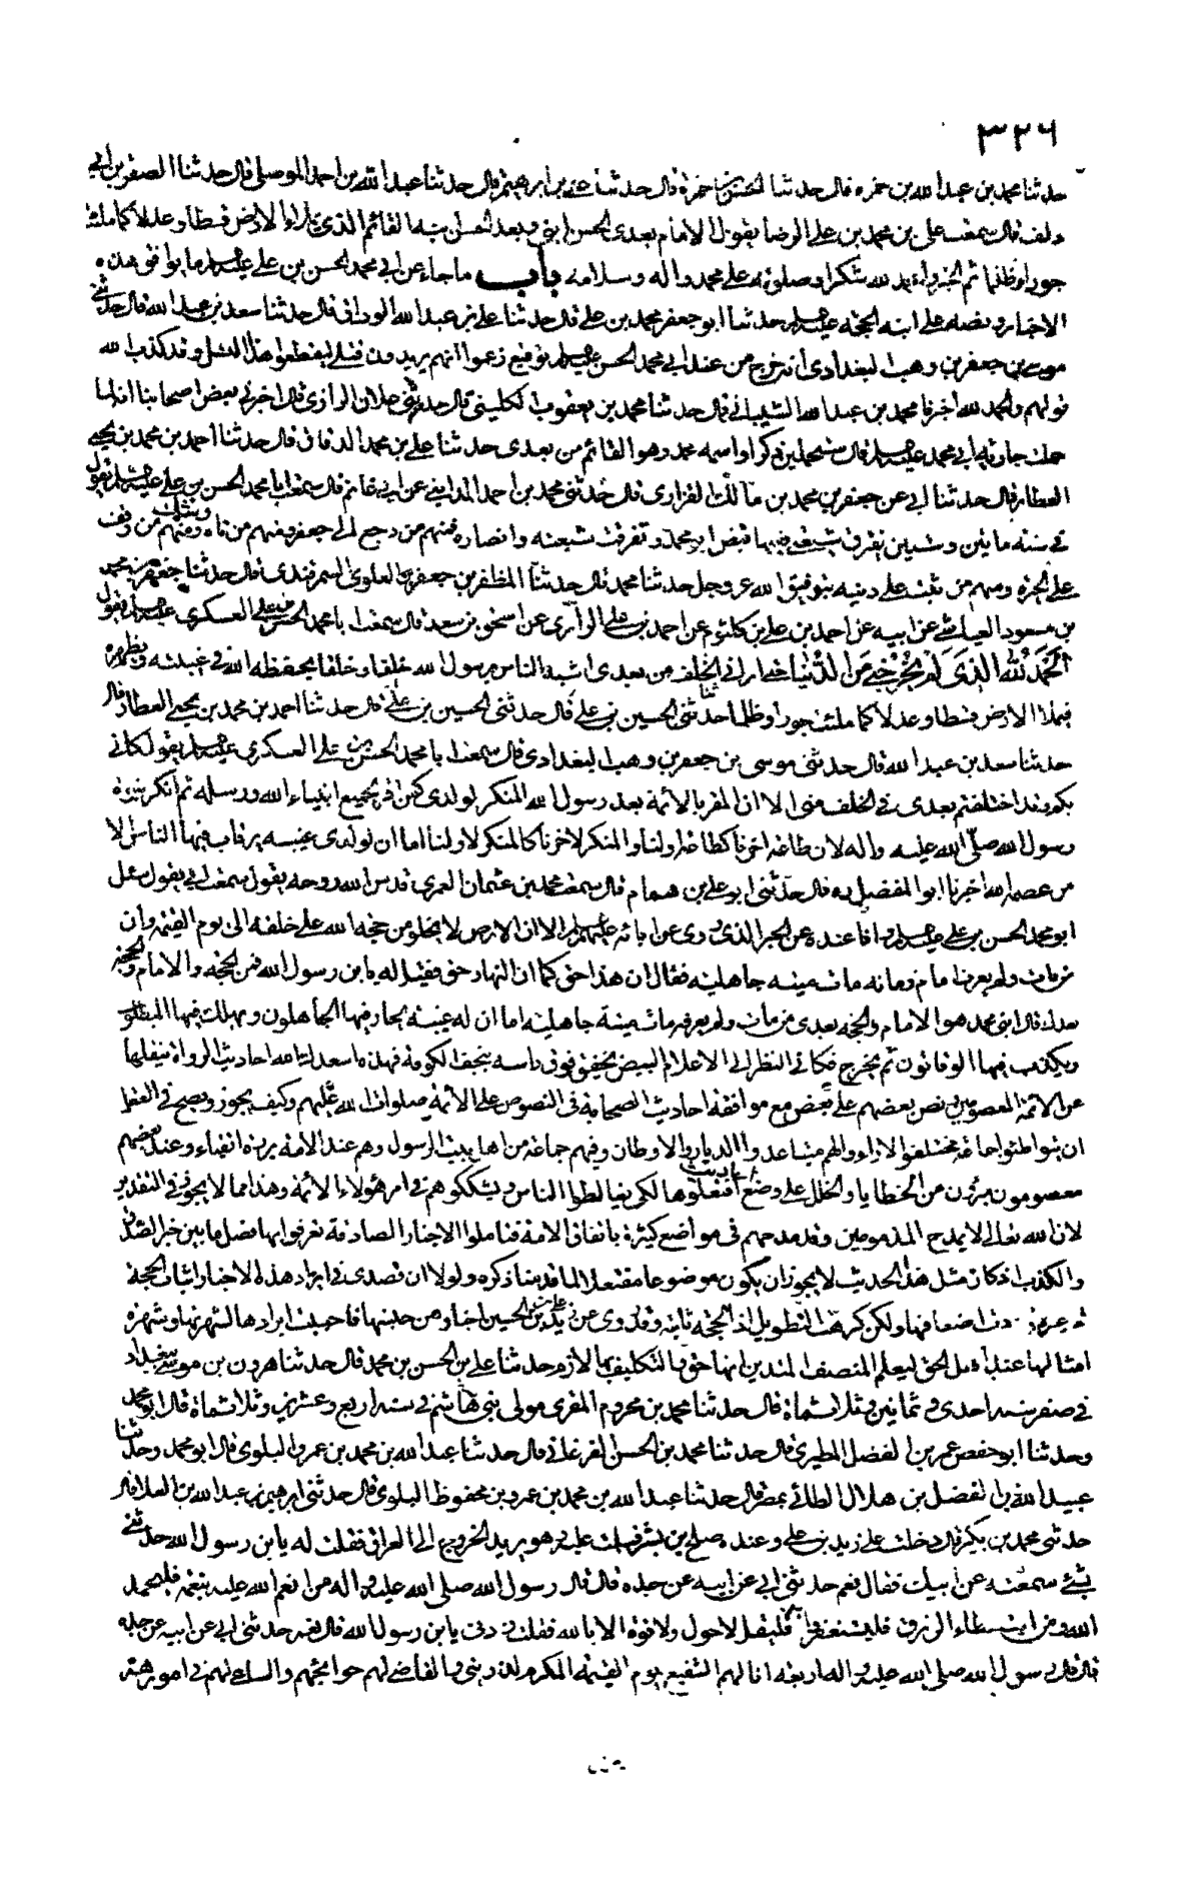 ٣٢٦
حدثنا محمد بن عبد الله بن حمزه قال حدثنا الحسن بن حمزة قال حدثنا علي بن ابرهيم قال حدثنا عبد الله بن احمد الموصلي قال حدثنا الصقر بن ابي
دلف قال سمعت علي بن محمد بن علي الرضا يقول الامام بعدى الحسن ابنى وبعد الحسن ابنه القائم الذي يملاء الارض قسطا وعدلا كما ملئت
جورا وظلما تم الخبر والحمد لله شكرا وصلوته على محمد واله وسلامه باب ما جاء عن ابي محمد الحسن بن علي عليه السلم ما يوافق هذه
الاخبار ونصه على ابنه الحجة عليه السلم حدثنا ابو جعفر محمد بن علي قال حدثنا علي بن عبد الله الوراق قال حدثنا سعد بن عبد الله قال حدثني
موسى بن جعفر بن وهب البغدادى انه خرج من عند ابي محمد الحسن عليه السلم توقيع زعموا انهم يريدون قتلي ليقطعوا هذا النسل وقد كذب الله
قولهم والحمد لله اخبرنا محمد بن عبد الله الشيباني قال حدثنا محمد بن يعقوب الكليني قال حدثني علان الرازى قال اخبرني بعض اصحابنا انه لما
حملت جارية ابي محمد عليه السلم قال ستحملين ذكرا واسمه محمد وهو القائم من بعدى حدثنا علي بن محمد الدقاق قال حدثنا احمد بن محمد بن يحيى
العطار قال حدثنا ابي عن جعفر بن محمد بن مالك الفزارى قال حدثني محمد بن احمد المدايني عن ابي غانم قال سمعت ابا محمد الحسن بن علي عليه السلم يقول
في سنه مايتين وستين تفرق شيعتي ففيها قبض ابو محمد وتفرقت شيعته وانصاره فمنهم من رجع الى جعفر ومنهم من تاه وشك ومنهم من وقف
على الحيرة ومنهم من ثبت على دينه بتوفيق الله عز وجل حدثنا محمد قال حدثنا المظفر بن جعفر العلوى السمرقندى قال حدثنا جعفر بن محمد
بن مسعود العياشي عن ابيه عن احمد بن علي بن كلثوم عن احمد بن علي الرازى عن اسحق بن سعد قال سمعت ابا محمد الحسن بن علي العسكرى عليه السلم يقول
الحمد لله الذى لم يخرجني من الدنيا حتى ارانى الخلف من بعدى اشبه الناس برسول الله خلقا وخلقا يحفظه الله في غيبته ويظهره
فيملا الارض قسطا وعدلا كما ملئت جورا وظلما حدثنى الحسين بن علي قال حدثنى الحسين بن علي قال حدثنا احمد بن محمد بن يحيى العطار قال
حدثنا سعد بن عبد الله قال حدثني موسى بن جعفر بن وهب البغدادى قال سمعت ابا محمد الحسن بن علي العسكرى عليه السلم يقول كاني
بكم وقد اختلفتم بعدى في الخلف منى الا ان المقر بالائمة بعد رسول الله المنكر لولدى كمن اقر بجميع انبياء الله ورسله ثم انكر نبوة
رسول الله صلى الله عليه واله لان طاعة اخرنا كطاعة اولنا والمنكر لاخرنا كالمنكر لاولنا اما ان لولدى غيبه يرتاب فيها الناس الا
من عصمه الله اخبرنا ابو المفضل ره قال حدثنى ابو علي بن همام قال سمعت محمد بن عثمان العمرى قدس الله روحه يقول سمعت ابي يقول سئل
ابو محمد الحسن بن علي عليه السلم وانا عنده عن الخبر الذى روى عن ابائه عليهم السلم الا ان الارض لا يخلو من حجة الله على خلقه الى يوم القيمة وان
من مات ولم يعرف امام زمانه مات ميته جاهليه فقال ان هذا حق كما ان النهار حق فقيل له يابن رسول الله فمن الحجة والامام
بعدك قال ابنى محمد هو الامام والحجه بعدى من مات ولم يعرفه مات ميتة جاهليه اما ان له غيبته يحار فيها الجاهلون ويهلك فيها المبطلون
ويكذب فيها الوقاتون ثم يخرج فكاني انظر الى الاعلام البيض يخفق فوق راسه بنجف الكوفة فهذه اسعدك الله احاديث الرواة ينقلها
عن الائمة المعصومين نص بعضهم على بعض مع موافقه احاديث الصحابة في النصوص على الائمة صلوات الله عليهم وكيف يجوز ويصح في العقل
ان يتواطئوا جماعة مختلفوا الاراء والهمم متباعدوا الديار والاوطان وفيهم جماعة من اهل بيت الرسول وهم عند الامة بررة اتقياء وعند بعضهم
معصومون مبرؤن من الخطايا والخلل على وضع احاديث افتعلوها لكى يغالطوا الناس ويشككوهم في امر هؤلاء الائمة وهذا مما لا يجوز في التقدير
لان الله تعالى لا يمدح المذمومين وقد مدحهم فى مواضع كثيرة باتفاق الامة فتاملوا الاخبار الصادقة تعرفوا بها فصل ما بين خبر الصدق
والكذب اذ كان مثل هذا الحديث لا يجوز ان يكون موضوعا مفتعلا لما قدمنا ذكره ولولا ان قصدى في ايراد هذه الاخبار اثبات الحجة
اضعافها ولكن كرهت التطويل اذ الحجة ثابتة وقد روى عن زيد بن علي بن الحسين اخبار من جنسها فاحببت ايرادها لشهرتها وشهرة
امثالها عند اهل الحق ليعلم المنصف المتدين انها حق والتكليف بها لازم حدثنا علي بن الحسن بن محمد قال حدثنا هرون بن موسى ببغداد
في صفر سنه احدى وثمانين وثلاثمائة قال حدثنا محمد بن مخزوم المقرى مولى بني هاشم في سنه اربع وعشرين وثلاثمائة قال ابو محمد
وحدثنا ابو حفص عمر بن الفضل المطيرى قال حدثنا محمد بن الحسن الفرغاني قال حدثنا عبد الله بن محمد بن عمرو البلوى قال ابو محمد وحدثنا
عبيد الله بن الفضل بن هلال الطائي بمصر قال حدثنا عبد الله بن محمد بن عمرو بن محفوظ البلوى قال حدثنى ابرهيم بن عبد الله بن العلا قال
حدثني محمد بن بكير قال دخلت على زيد بن علي وعنده صلح بن بشر فسلمت عليه وهو يريد الخروج الى العراق فقلت له يابن رسول الله حدثني
بشئ سمعته عن ابيك فقال نعم حدثني ابي عن ابيه عن جده قال قال رسول الله صلى الله عليه واله من انعم الله عليه بنعمة فليحمد
الله ومن استبطاء الرزق فليستغفر الله فليقل لا حول ولا قوة الا بالله فقلت زدنى يابن رسول الله قال نعم حدثني ابي عن ابيه عن جده
قال قال رسول الله صلى الله عليه واله اربعة انا لهم الشفيع يوم القيمة المكرم لذريتي والقاضى لهم حوايجهم والساعى لهم في امورهم